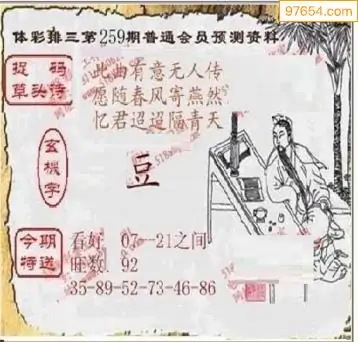 97654.com
体彩排三第259期普通会员预测资料
捉码
草头诗
此曲有意无人传
愿随春风寄燕然
忆君迢迢隔青天
玄機字
豆
今期
特送
看好 07--21之间
旺数 92
35-89-52-73-46-86